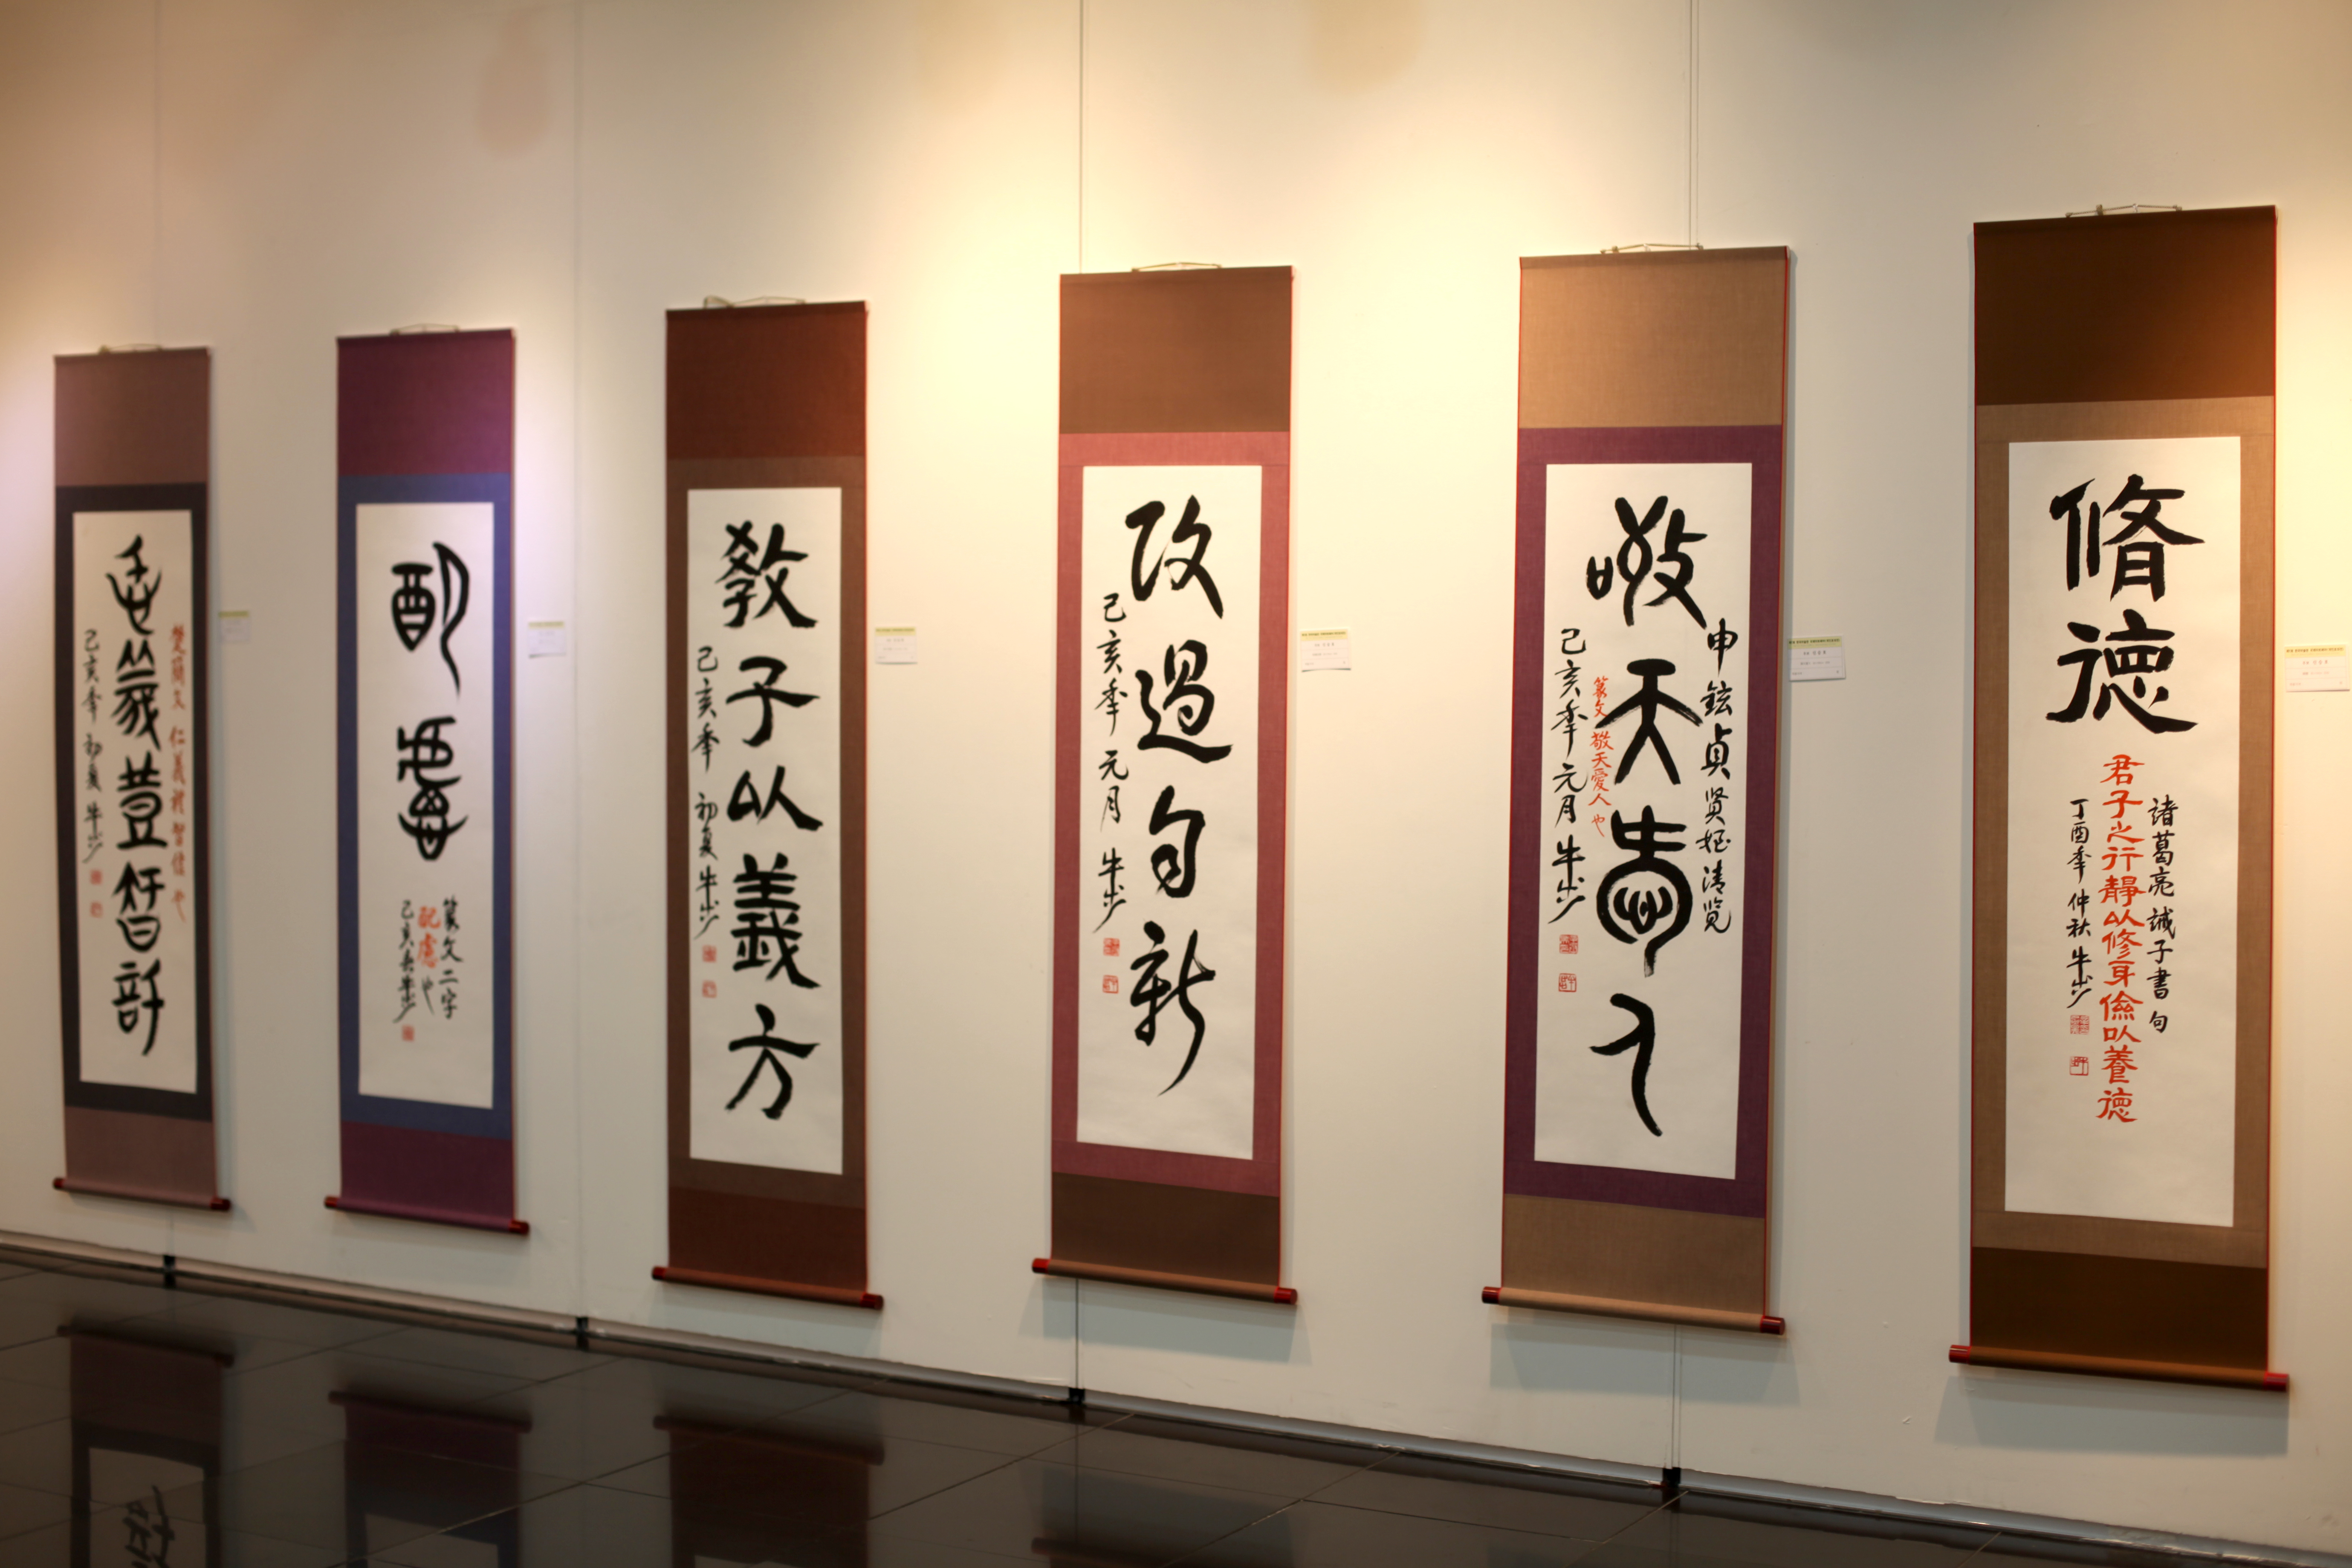 脩德
諸葛亮誡子書句
君子之行靜以修身儉以養德
丁酉秊仲秋 牛步
申鉉貞賢姪清覧
敬天愛人
篆文 敬天愛人也
己亥秊元月 牛步
改過自新
己亥秊元月 牛步
教子以義方
己亥秊 初夏 牛步
配慮
篆文二字
配慮也
楚簡文 仁義禮智信也
仁義禮智信
己亥秊 初夏 牛步